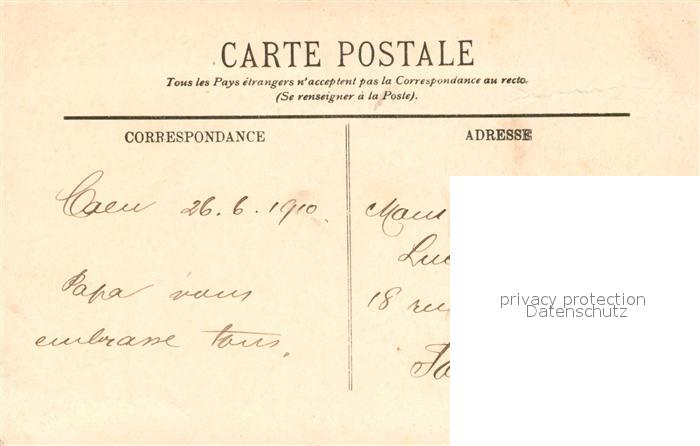 CARTE POSTALE
Tous les Pays étrangers n'acceptent pas la Correspondance au recto.
(Se renseigner à la Poste).
CORRESPONDANCE
ADRESSE
Caen 26.6.1910.
Papa vous
embrasse tous.
18 rue
privacy protection
Datenschutz